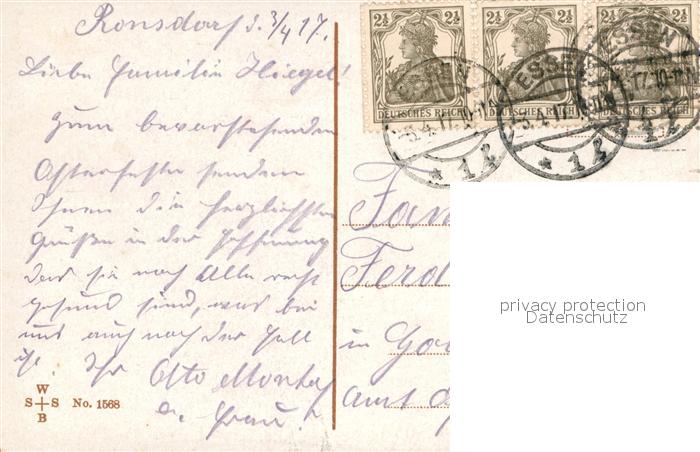 Ronsdorf d. 3/4 17.
Liebe Familie Hiegel!
Zum bevorstehenden
Osterfeste senden
Ihnen die herzlichsten
Grüßen in der Hoffnung
das sie noch Alle recht
gesund sind, was bei
uns auch noch der Fall
ist. Ihr Otto
u. Frau!
W
S S
B
No. 1568
2½ 2½
DEUTSCHES REICH
2½ 2½
DEUTSCHES REICH
2½
ESSEN
3.4.17
* 1 l
ESSEN
* 1 l
ESSEN
1 l
Fam
Ferd
in
amt
privacy protection
Datenschutz